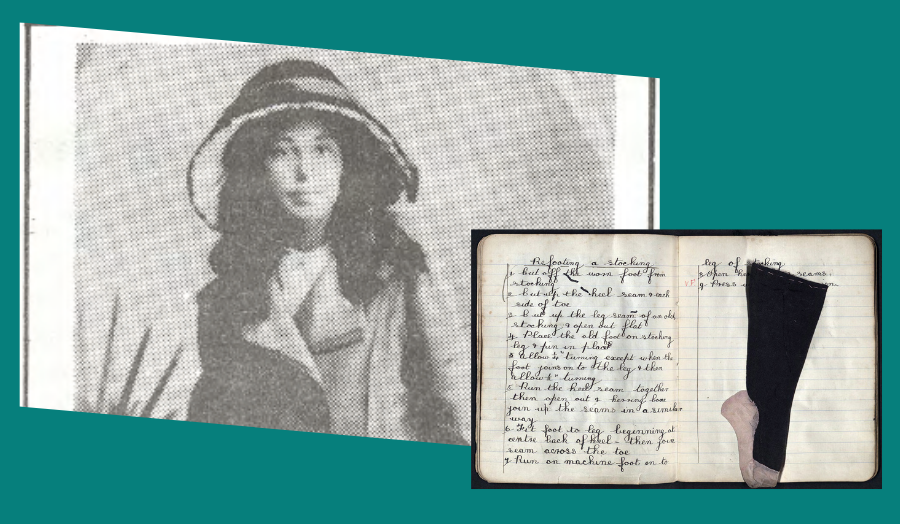 Refooting a stocking
1 Cut off the worn foot from
stocking
2 Cut up the heel seam & each
side of toe
3 Cut up the leg seam of an old
stocking & open out flat
4 Place the old foot on stocking
leg & pin in place
5 Allow ¼" turning except when the
foot joins on to the leg & then
allow ½" turning
5 Run the heel seam together
then open out & herring bone
join up the seams in a similar
way
6 Fit foot to leg beginning at
centre back of heel - then join
seam across the toe
7 Run on machine foot on to
leg of stocking
8 Open seams.
9 Press